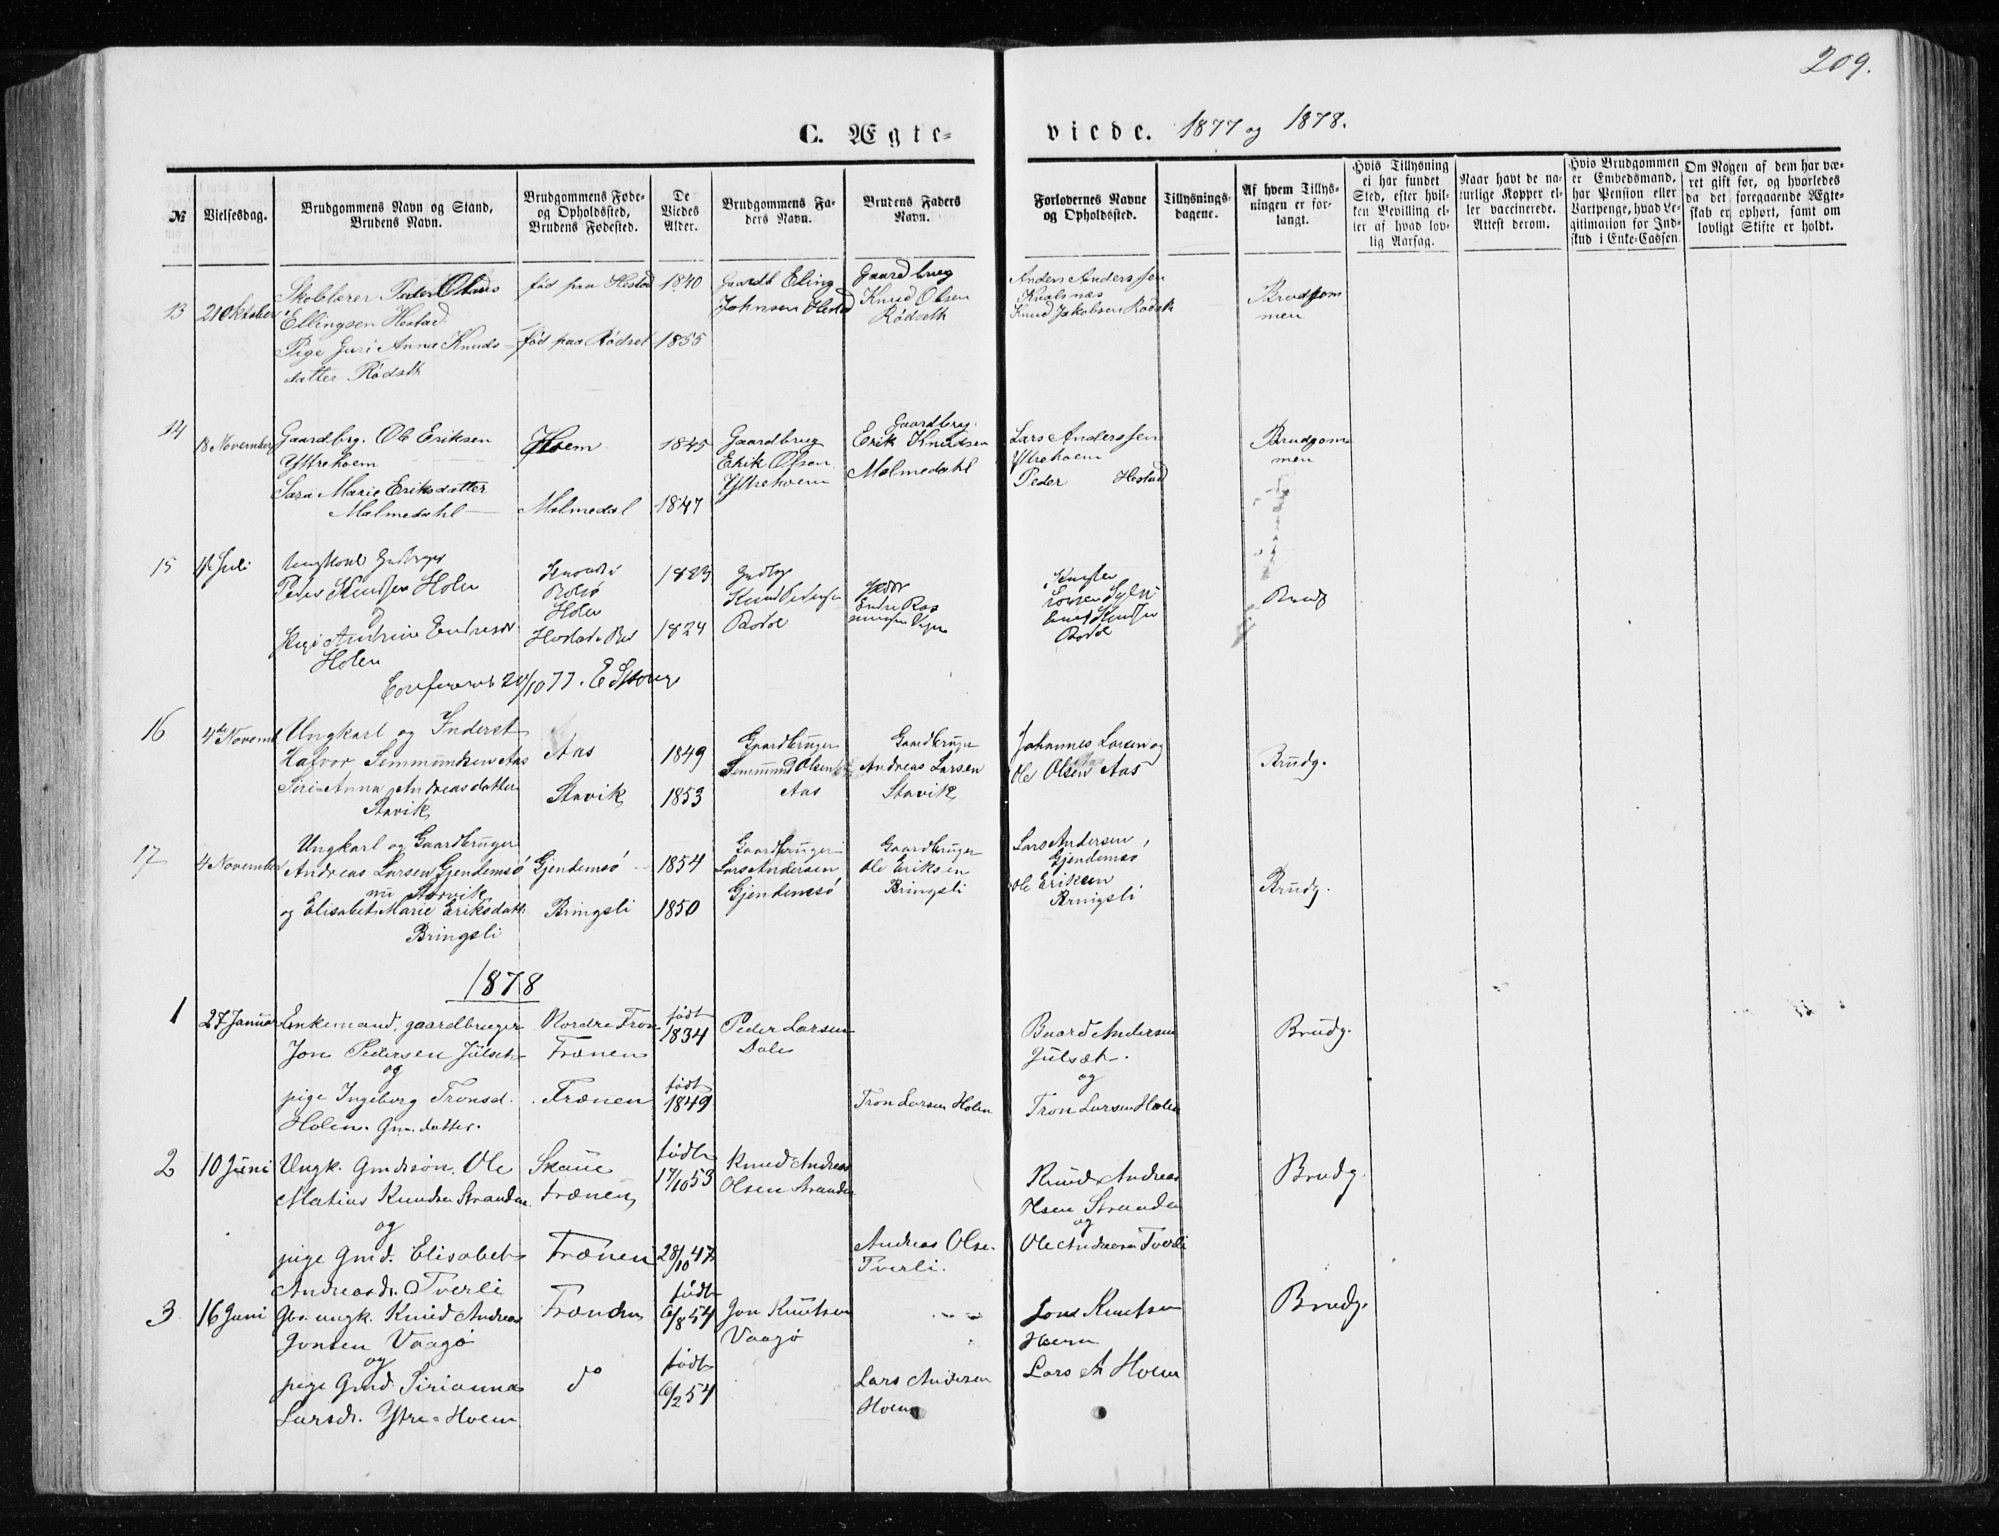 209.
C. Ægte-
viede. 1877 og 1878.
№
Vielsesdag.
Brudgommens Navn og Stand,
Brudens Navn.
Brudgommens Føde-
og Opholdssted,
Brudens Fødested.
De
Viedes
Alder.
Brudgommens Fa-
ders Navn.
Brudens Faders
Navn.
Forlovernes Navne
og Opholdssted.
Tillysnings-
dagene.
Af hvem Tillys-
ningen er for-
langt.
Hvis Tillysning
ei har fundet
Sted, efter hvil-
ken Bevilling el-
ler af hvad lov-
lig Aarsag.
Naar havt de na-
turlige Kopper el-
ler vaccinerede.
Attest derom.
Hvis Brudgommen
er Embedsmand,
har Pension eller
Vartpenge, hvad Le-
gitimation for Ind-
skud i Enke-Cassen.
Om Nogen af dem har væ-
ret gift før, og hvorledes
da det foregaaende Ægte-
skab er ophørt, samt om
lovligt Skifte er holdt.
13
21 Oktober
Skolelærer Peder
Ellingsen Hestad
Pige Guri Anna Knuds-
datter Rödseth
fød paa Hestad
fød paa Rødset
1840
1855
Gaardb Eling
Johnsen Hestad
Gaardbrug
Knud Olsen
Rødseth
Anders Anderssen
Kvalsnæs
Knud Jakobsen Rødseth
Brudgom
men
14
18 November
Gaardbrg. Ole Eriksen
Yttrehoem
Sara Marie Eriksdatter
Malmedahl
Hoem
Malmedal
1845
1847
Gaardbrug
Erik Olsen
Yttrehoem
Gaardbrug.
Erik Knudsen
Malmedahl
Lars Anderssen
Yttrehoem
Peder Hestad
Brudgom
men
15
4 Juli
Ungkarl
Peder Knudsen Holen
og
Holen
Holen
1823
1824
Knud Pedersen
Endre Ras
Brudg
16
4de Novemb
Ungkarl og Inderst
Halvor Semmundsen Aas
Siri-Anna Andreasdatter
Stavik
Aas
Stavik
1849
1853
Gaardbruger
Semmund Olsen
Aas
Gaardbruger
Andreas Larsen
Stavik
Johannes Larsen og
Ole Olsen Aas
Brudg.
17
4 November
Ungkarl og Gaardbruger
Andreas Larsen Gjendemsø
nu Stavik
og Elisabet Marie Eriksdatt.
Bringsli
Gjendemsø
Bringsli
1854
1850
Gaardbruger
Lars Andersen
Gjendemsø
Gaardbruger
Ole Eriksen
Bringsli
Lars Andersen,
Gjendemsø
Ole Eriksen
Bringsli
Brudg.
1878
1
27 Januar
Enkemand, gaardbruger
Jon Pedersen Julset
og
pige Ingeborg Tronsd.
Holen. Gm. datter.
Nordre Fron
Frænen
Frænen
født
1834
født
1849
Peder Larsen
Dale
Tron Larsen Holen
Baard Andersen
Julsæt.
og
Tron Larsen Holen
Brudg.
2
10 Juni
Ungk. Gmdssøn. Ole
Matias Knudsen Stranden
og
pige Gmd. Elisabet
Andreasdr. Tverli
Skaue
Frænen
Frænen
født
17/10 53
28/10 47
Knud Andreas
Olsen Stranden
Andreas Olsen
Tverli.
Knud Andreas
Olsen Stranden
og
Ole Andresen Tverli
Brudg.
3
16 Juni
ungk. Knud Andreas
Jonsen Vaagø
og
pige Gmd. Sirianna
Larsdr. Ytre-Hoem
Frænen
do
født
6/8 54
født
6/2 54
Jon Knutsen
Vaagø
Lars Andersen
Hoem
Jon Knutsen
Hoem
Lars A Hoem
Brudg.